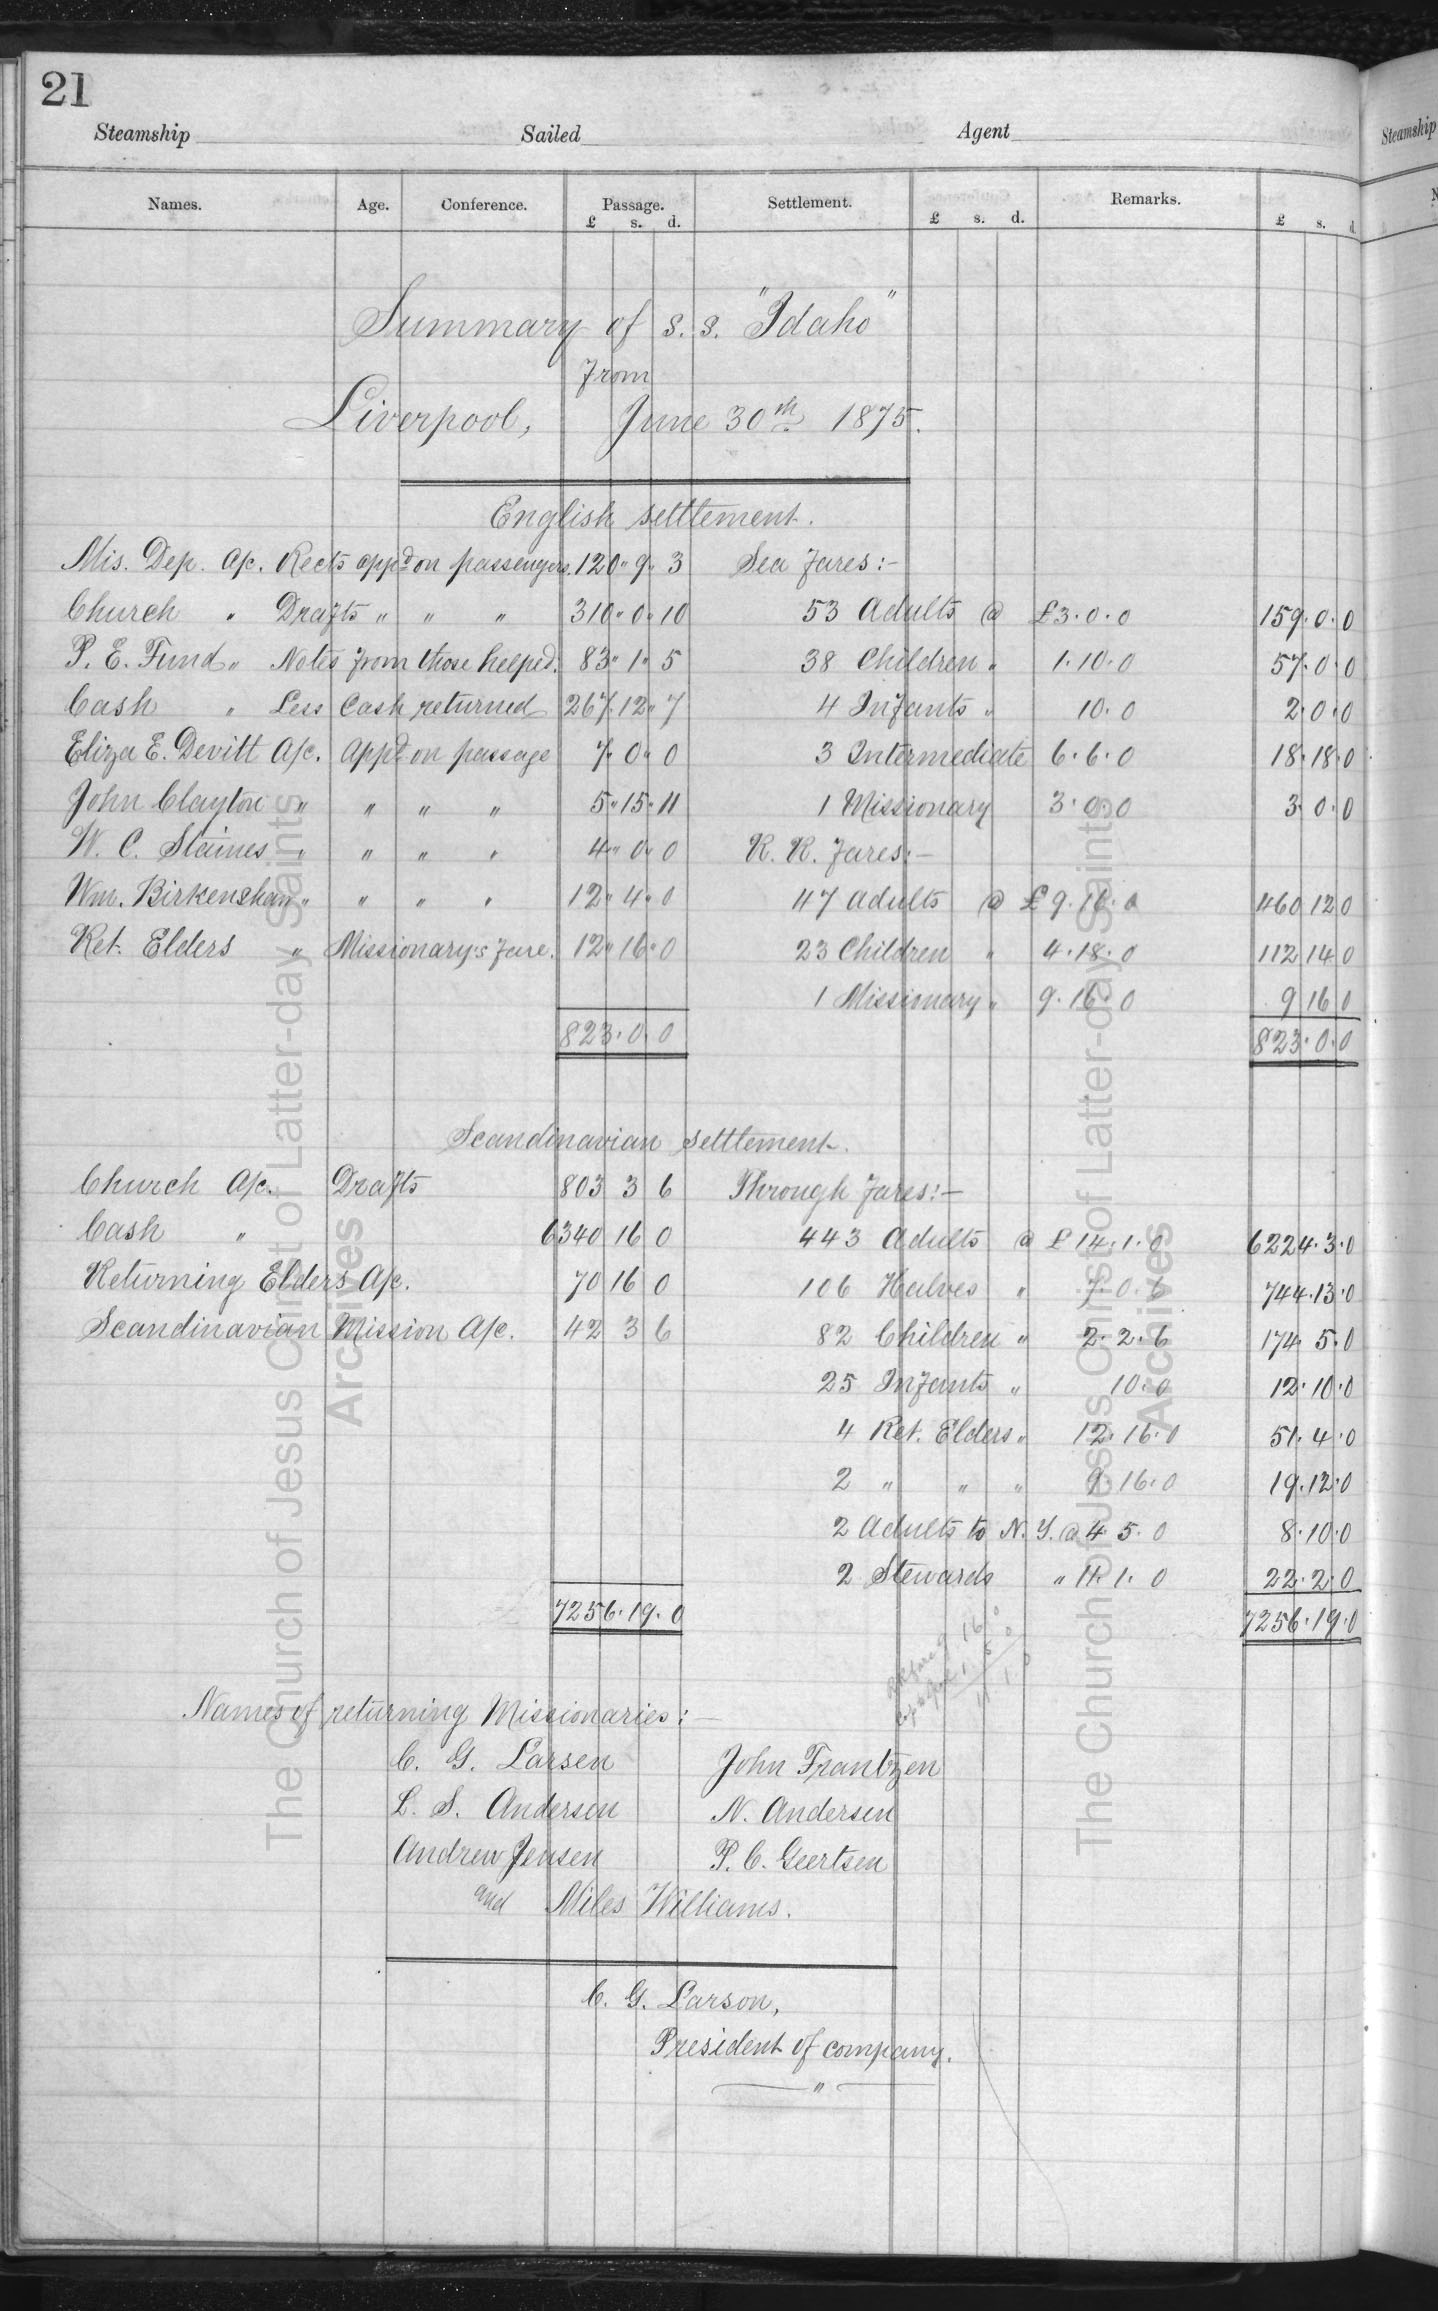 21
Steamship Sailed Agent Steamship
Names. Age. Conference. Passage. £ s. d. Settlement. £ s. d. Remarks. £ s. d.
Summary of s. s. "Idaho"
From
Liverpool, June 30th 1875.
English settlement.
Mis. Dep. A/c. Rects appd on passengers. 120 " 9 " 3 Sea Fares:-
Church " Drafts " " " 310 " 0 " 10 53 Adults @ £3.0.0 159.0.0
P. E. Fund " Notes from those helped. 83 " 1 " 5 38 Children " 1.10.0 57.0.0
Cash " Less Cash returned 267 " 12 " 7 4 Infants " 10.0 2.0.0
Eliza E. Devitt A/c. Appd on passage 7 " 0 " 0 3 Intermediate 6.6.0 18.18.0
John Clayton " " " " 5 " 15 " 11 1 Missionary 3.0.0 3.0.0
W. C. Staines " " " " 4 " 0 " 0 R. R. Fares:-
Wm. Birkenshaw " " " " 12 " 4 " 0 47 Adults @ £9.16.0 460 12 0
Ret. Elders " Missionary's Fare. 12 " 16 " 0 23 Children " 4.18.0 112 14 0
1 Missionary " 9.16.0 9 16 0
823.0.0 823.0.0
Scandinavian settlement.
Church A/c. Drafts 803 3 6 Through Fares:-
Cash " 6340 16 0 443 Adults @ £14.1.0 6224.3.0
Returning Elders A/c. 70 16 0 106 Halves " 7.0.6 744.13.0
Scandinavian Mission A/c. 42 3 6 82 Children " 2.2.6 174.5.0
25 Infants " 10.0 12.10.0
4 Ret. Elders " 12.16.0 51.4.0
2 " " " 9.16.0 19.12.0
2 Adults to N. Y. @ 4 5.0 8.10.0
2 Stewards " 11.1.0 22.2.0
7256.19.0 7256.19.0
16 0
1 5 0
11 1 0
Names of returning Missionaries:-
C. G. Larsen John Frantzen
L. S. Andersen N. Andersen
Andrew Jensen P. C. Geertsen
and Miles Williams.
C. G. Larson,
President of company.
"
The Church of Jesus Christ of Latter-day Saints
Archives
The Church of Jesus Christ of Latter-day Saints
Archives